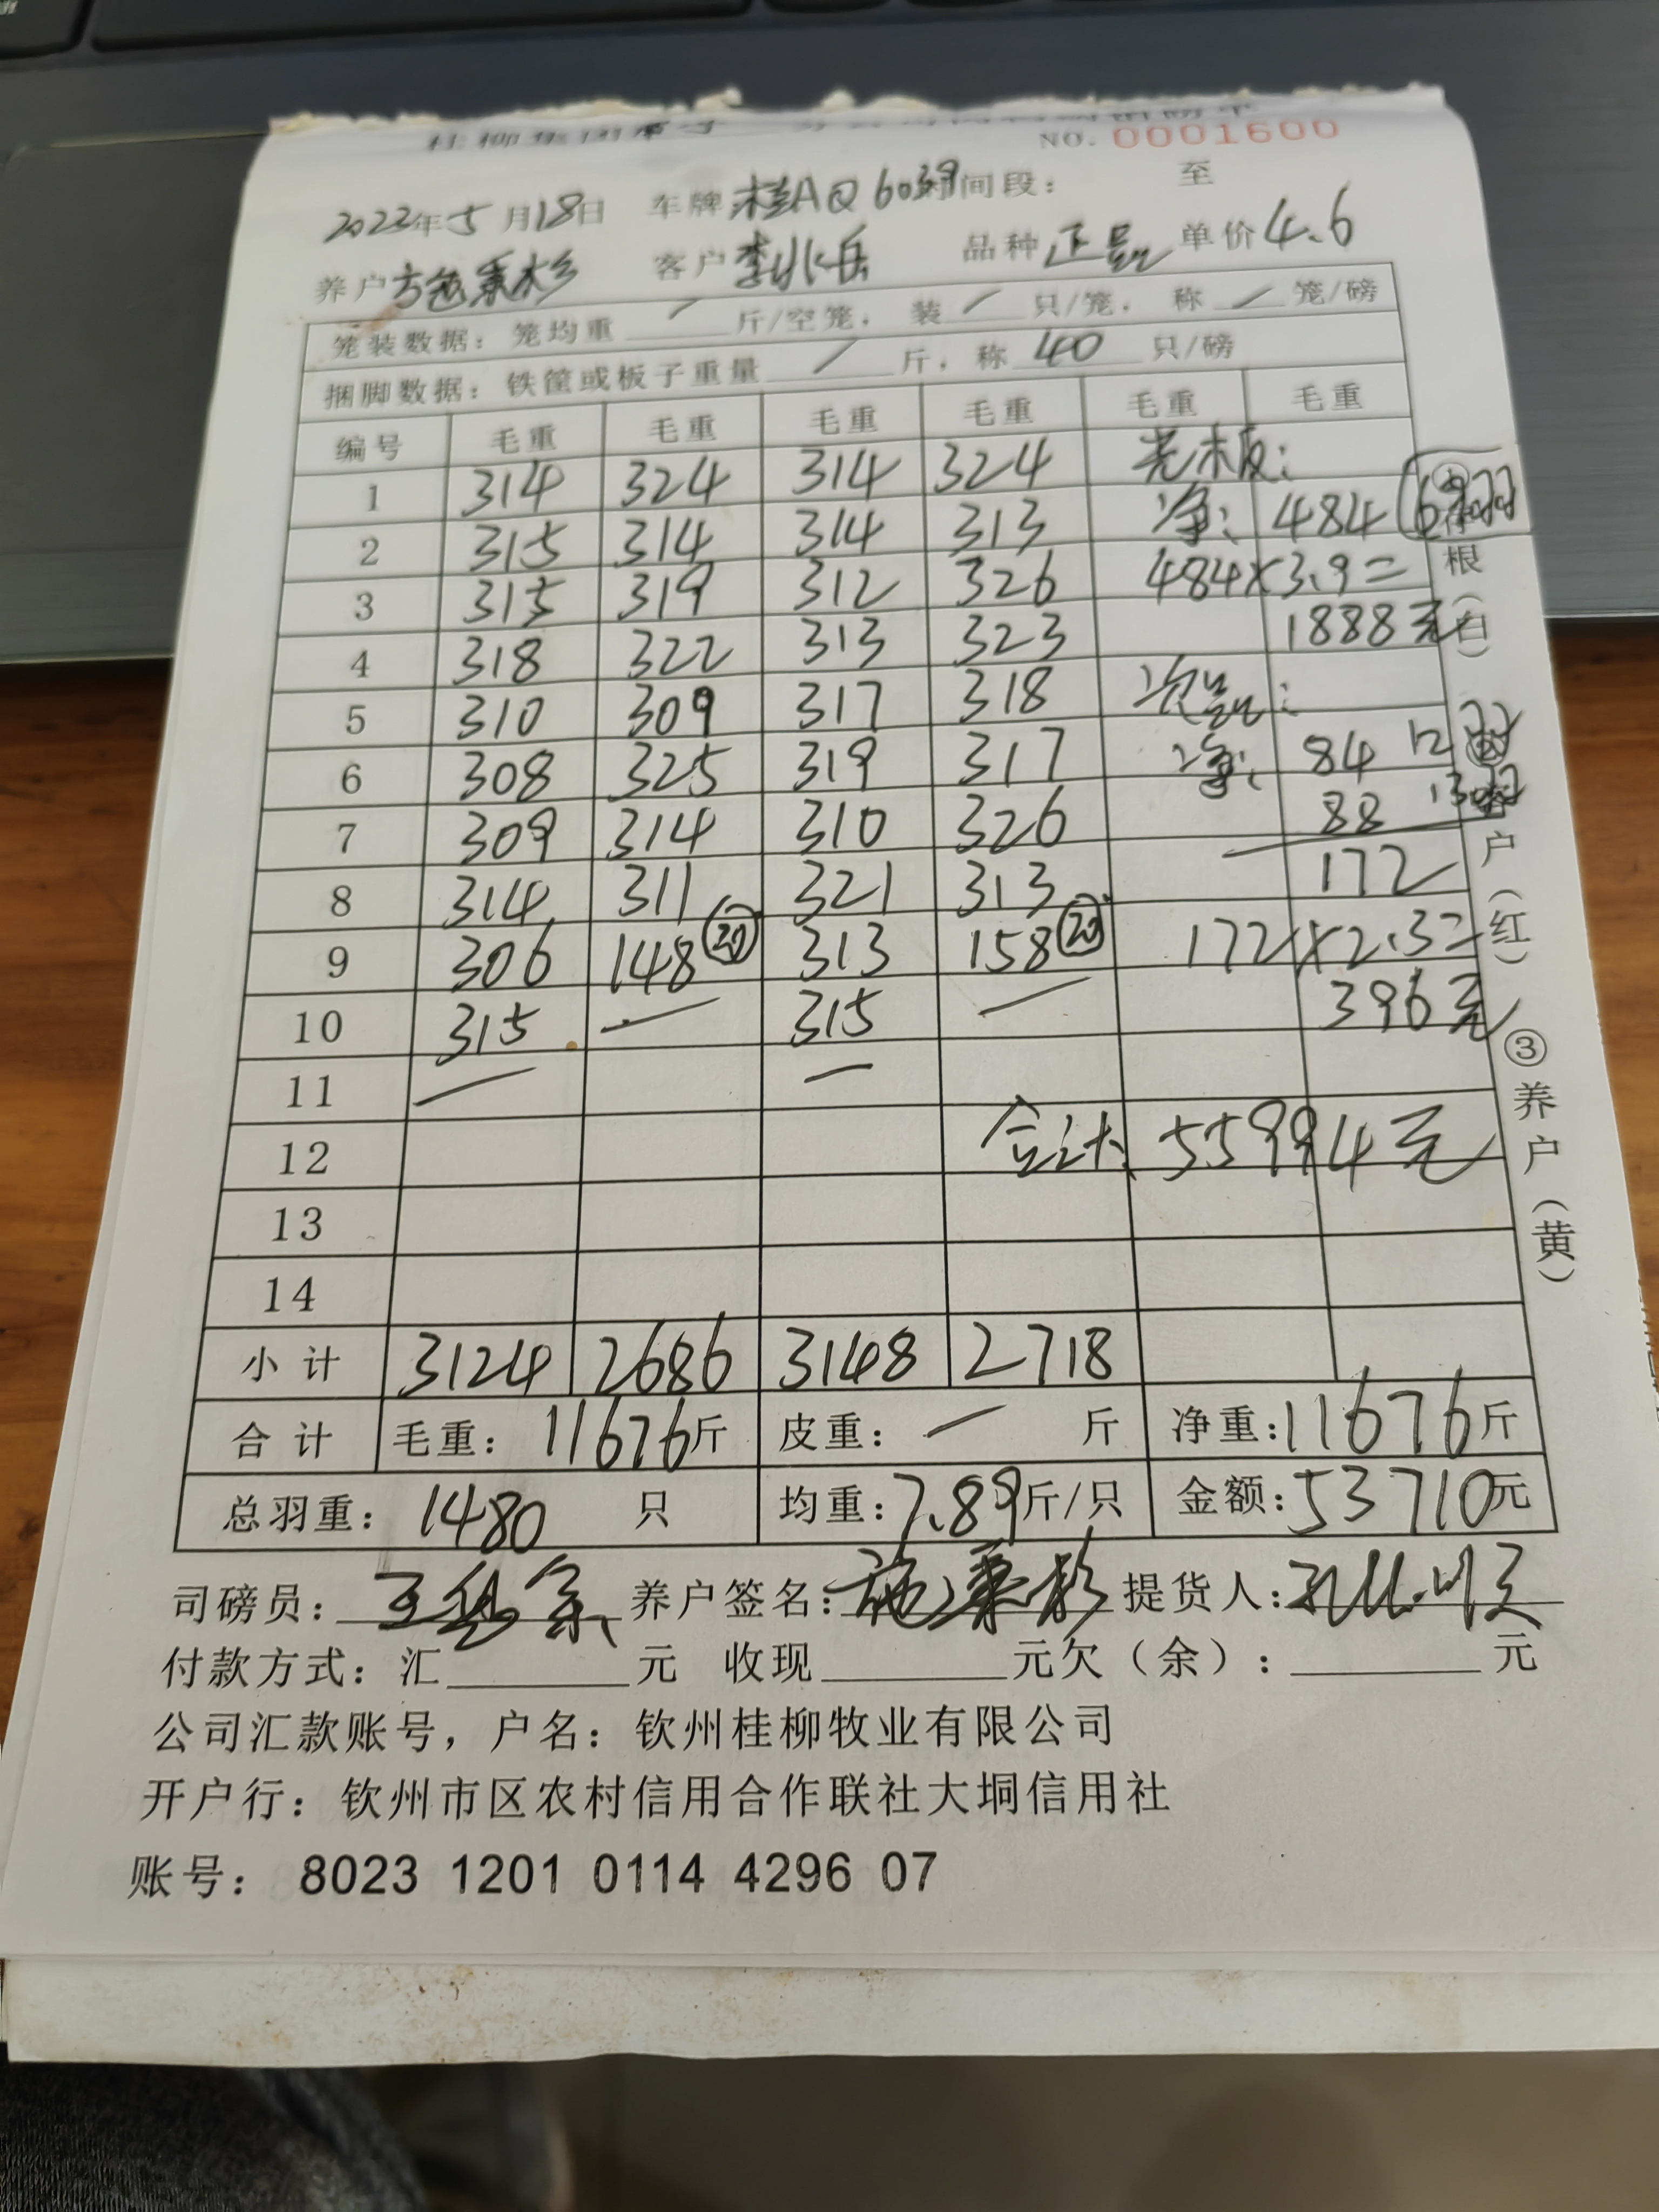 NO. 0001600
2022年5月18日 车牌 桂AQ6039 时间段： 至
养户 施秉杉 客户 李兆岳 品种 正品 单价 4.6
笼装数据：笼均重 / 斤/空笼，装 / 只/笼，称 / 笼/磅
捆脚数据：铁筐或板子重量 / 斤，称 40 只/磅
编号 毛重 毛重 毛重 毛重 毛重 毛重
1 314 324 314 324 光木板：
2 315 314 314 313 净： 484
3 315 319 312 326 484×3.9=
4 318 322 313 323 1888元
5 310 309 317 318 次品：
6 308 325 319 317 净： 84 12羽
7 309 314 310 326 88 13羽
8 314 311 321 313 172
9 306 148 ⑳ 313 158 ⑳ 172×2.3=
10 315 — 315 — 396元
11 — —
12 合计： 55994元
13
14
小计 3124 2686 3148 2718
合计 毛重：11676斤 皮重： — 斤 净重：11676斤
总羽重：1480 只 均重：7.89斤/只 金额：53710元
司磅员： 养户签名：施秉杉 提货人：
付款方式：汇 元 收现 元欠（余）： 元
公司汇款账号，户名：钦州桂柳牧业有限公司
开户行：钦州市区农村信用合作联社大垌信用社
账号：8023 1201 0114 4296 07
根（白）
户（红）
③养户（黄）